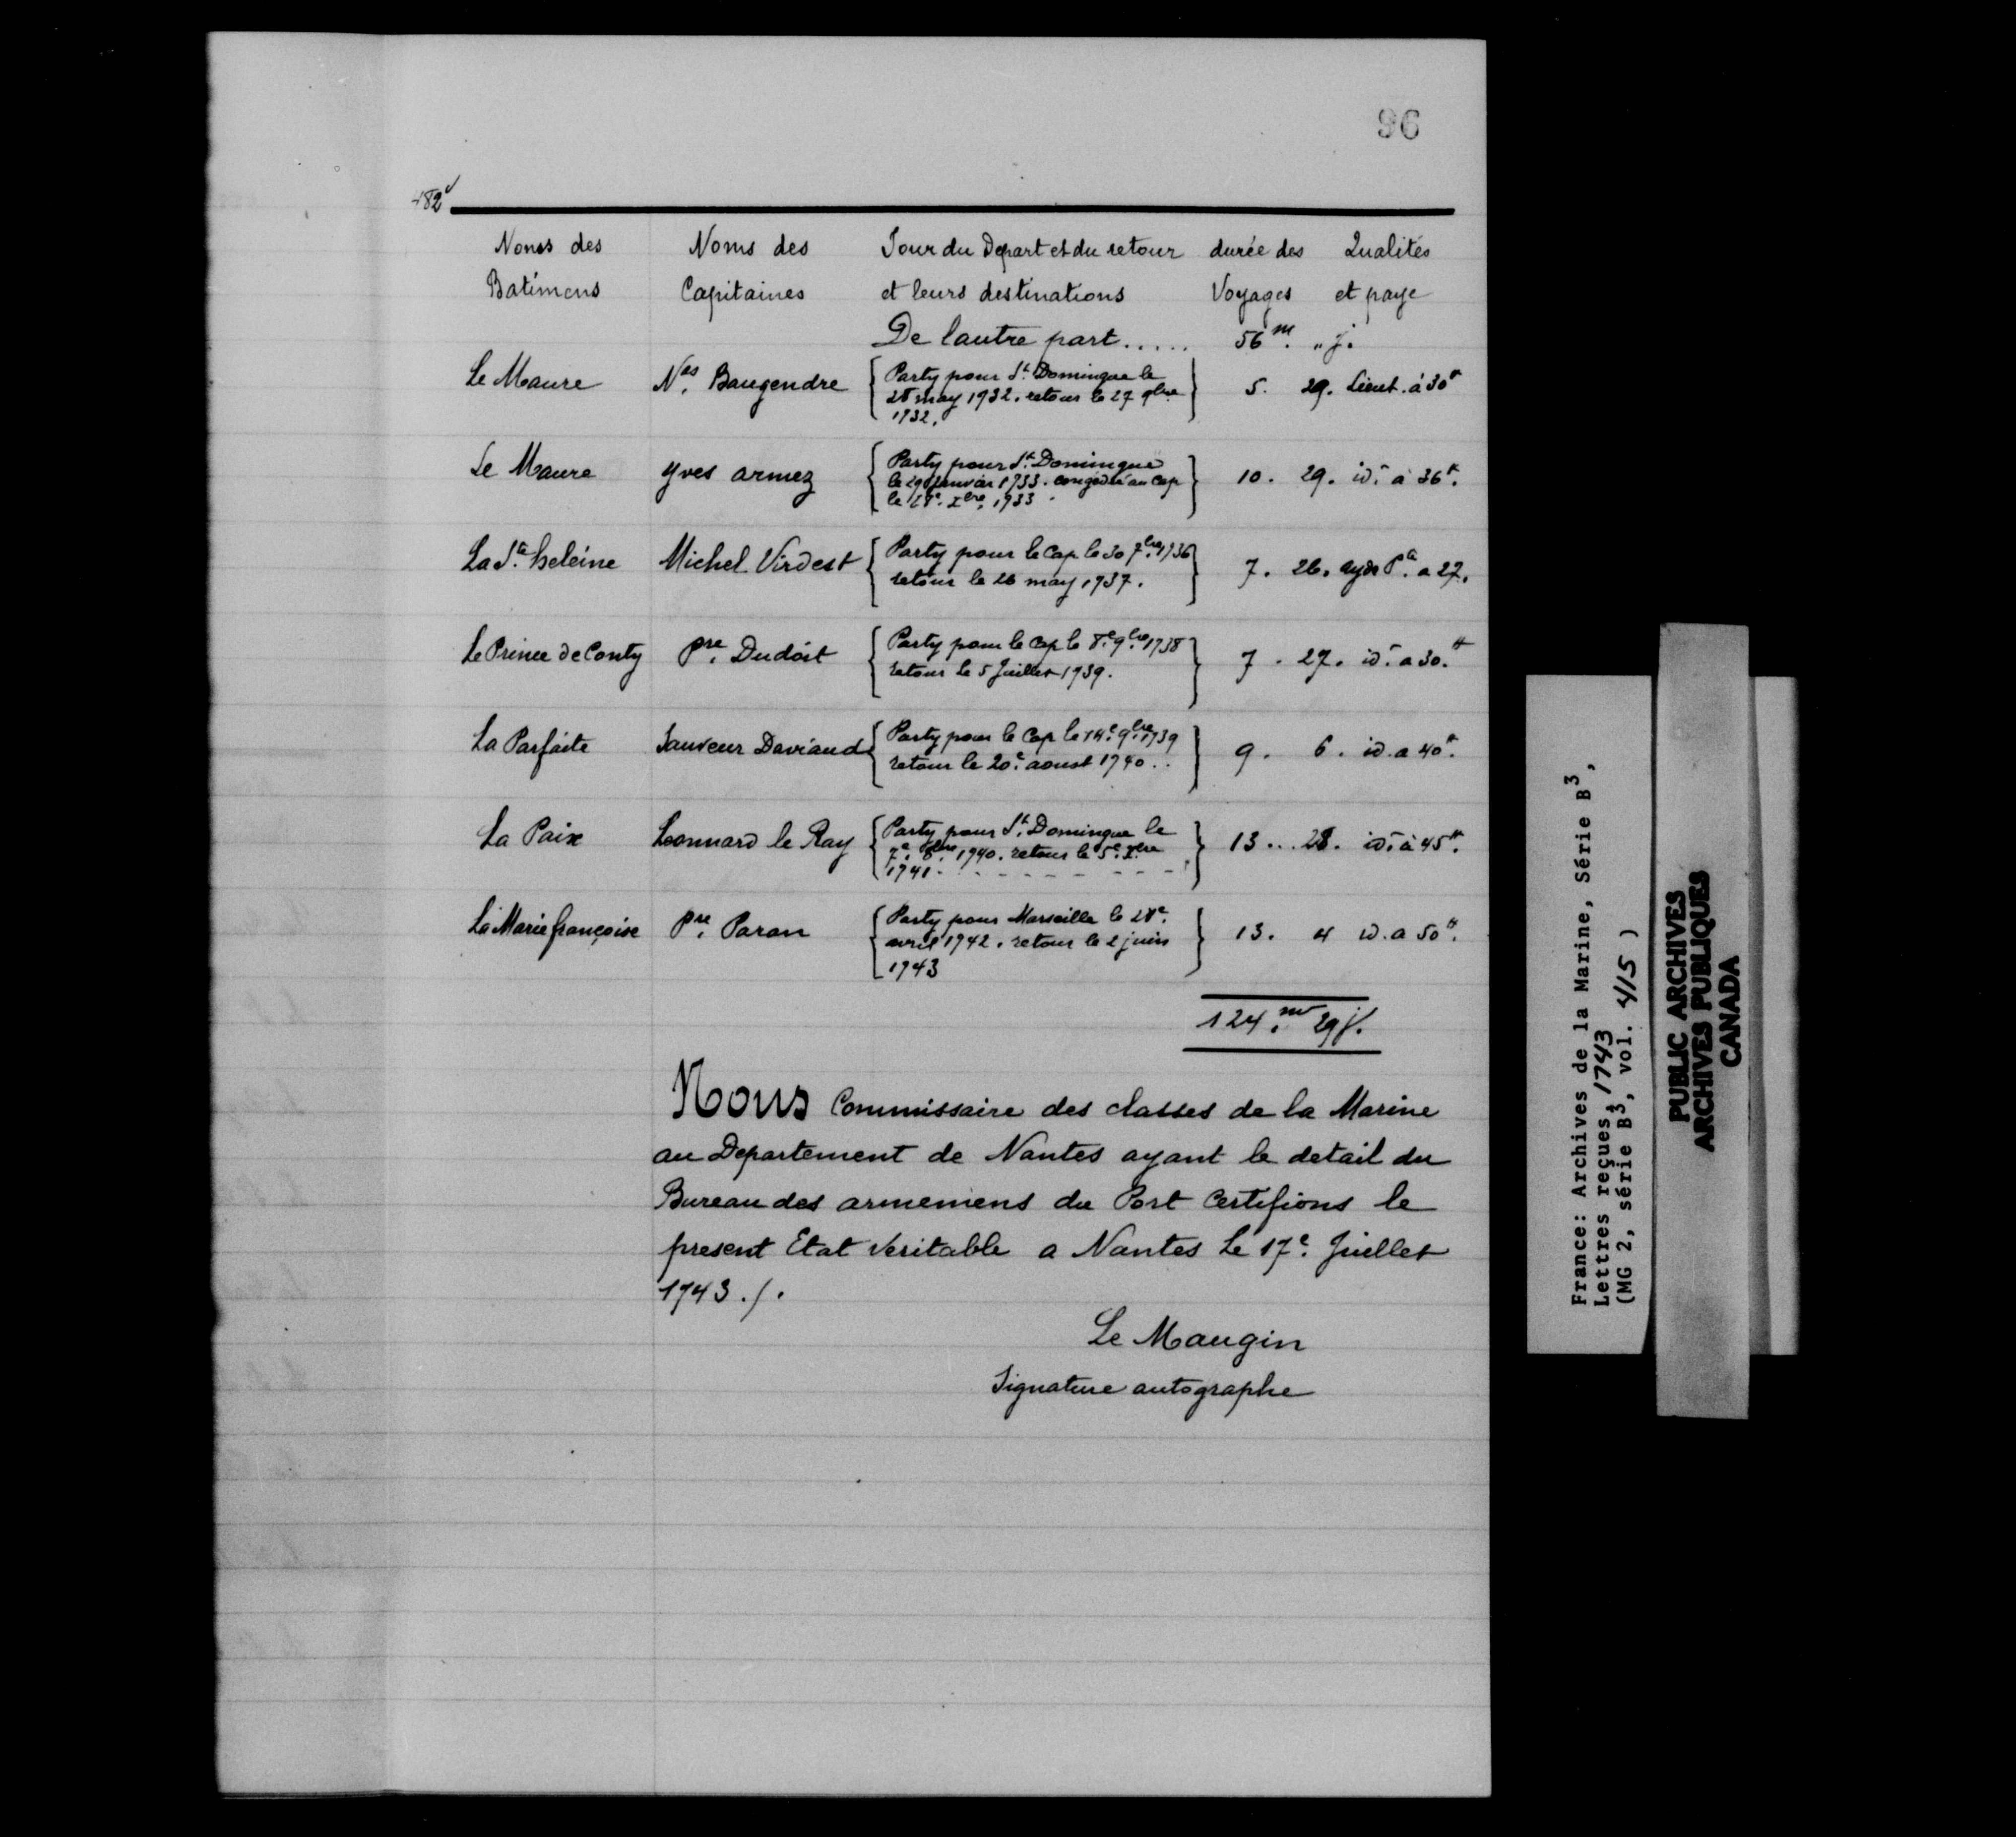 96
182v
Noms des Noms des Jour du Depart et du retour durée des Qualités
Batimens Capitaines et leurs destinations Voyages et paye
De lautre part..... 56m. " j.
Le Maure Nas. Baugendre Party pour St. Domingue le 5. 29. Lieut. à 30tt
28 may 1732. retour le 27 9bre
1732.
Le Maure yves armez Party pour St. Domingue 10. 29. id. à 36tt.
le 29 Janvier 1733. congédié au Cap
le 28e. Xbre. 1733.
La Ste. heleine Michel Virdest Party pour le Cap le 30 7bre. 1736 7. 26. ayde Pte. a 27.
retour le 26 may 1737.
Le Prince de Conty Pre. Dudoit Party pour le Cap le 8e. 9bre. 1738 7. 27. id. a 30.tt
retour le 5 Juillet 1739.
La Parfaite Sauveur Daviaud Party pour le Cap le 14e. 9bre. 1739 9. 6. id. a 40tt.
retour le 20e. aoust 1740..
La Paix Leonnard le Ray Party pour St. Domingue le 13... 28. id. à 45tt.
7e. 8bre. 1740. retour le 5e. Xbre
1741.
La Marie françoise Pre. Paran Party pour Marseille le 28e. 13. 4 id. a 50tt.
avril 1742. retour le 2 juin
1743
124.m 29 j.
Nous Commissaire des classes de la Marine
au Departement de Nantes ayant le detail du
Bureau des armemens du Port Certifions le
present Etat veritable a Nantes Le 17e. Juillet
1743./.
Le Maugin
Signature autographe
France: Archives de la Marine, Série B3,
Lettres reçues, 1743
(MG 2, série B3, vol. 415 )
PUBLIC ARCHIVES
ARCHIVES PUBLIQUES
CANADA